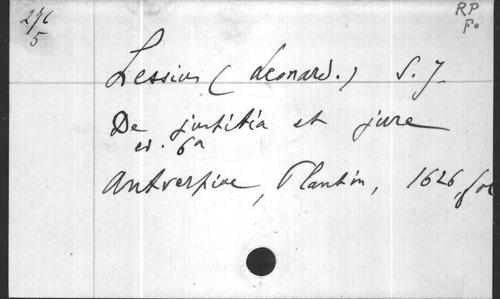 276
5
RP
Fo
Lessius (Leonard.) S. J.
De justitia et jure
ed. 6a
Antverpiae, Plantin, 1626, fol